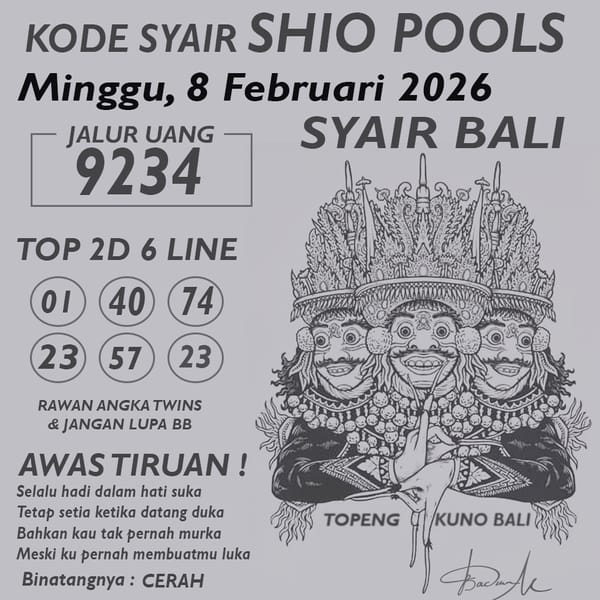 KODE SYAIR SHIO POOLS
Minggu, 8 Februari 2026
SYAIR BALI
JALUR UANG
9234
TOP 2D 6 LINE
01 40 74
23 57 23
RAWAN ANGKA TWINS
& JANGAN LUPA BB
AWAS TIRUAN !
Selalu hadi dalam hati suka
Tetap setia ketika datang duka
Bahkan kau tak pernah murka
Meski ku pernah membuatmu luka
Binatangnya : CERAH
TOPENG KUNO BALI